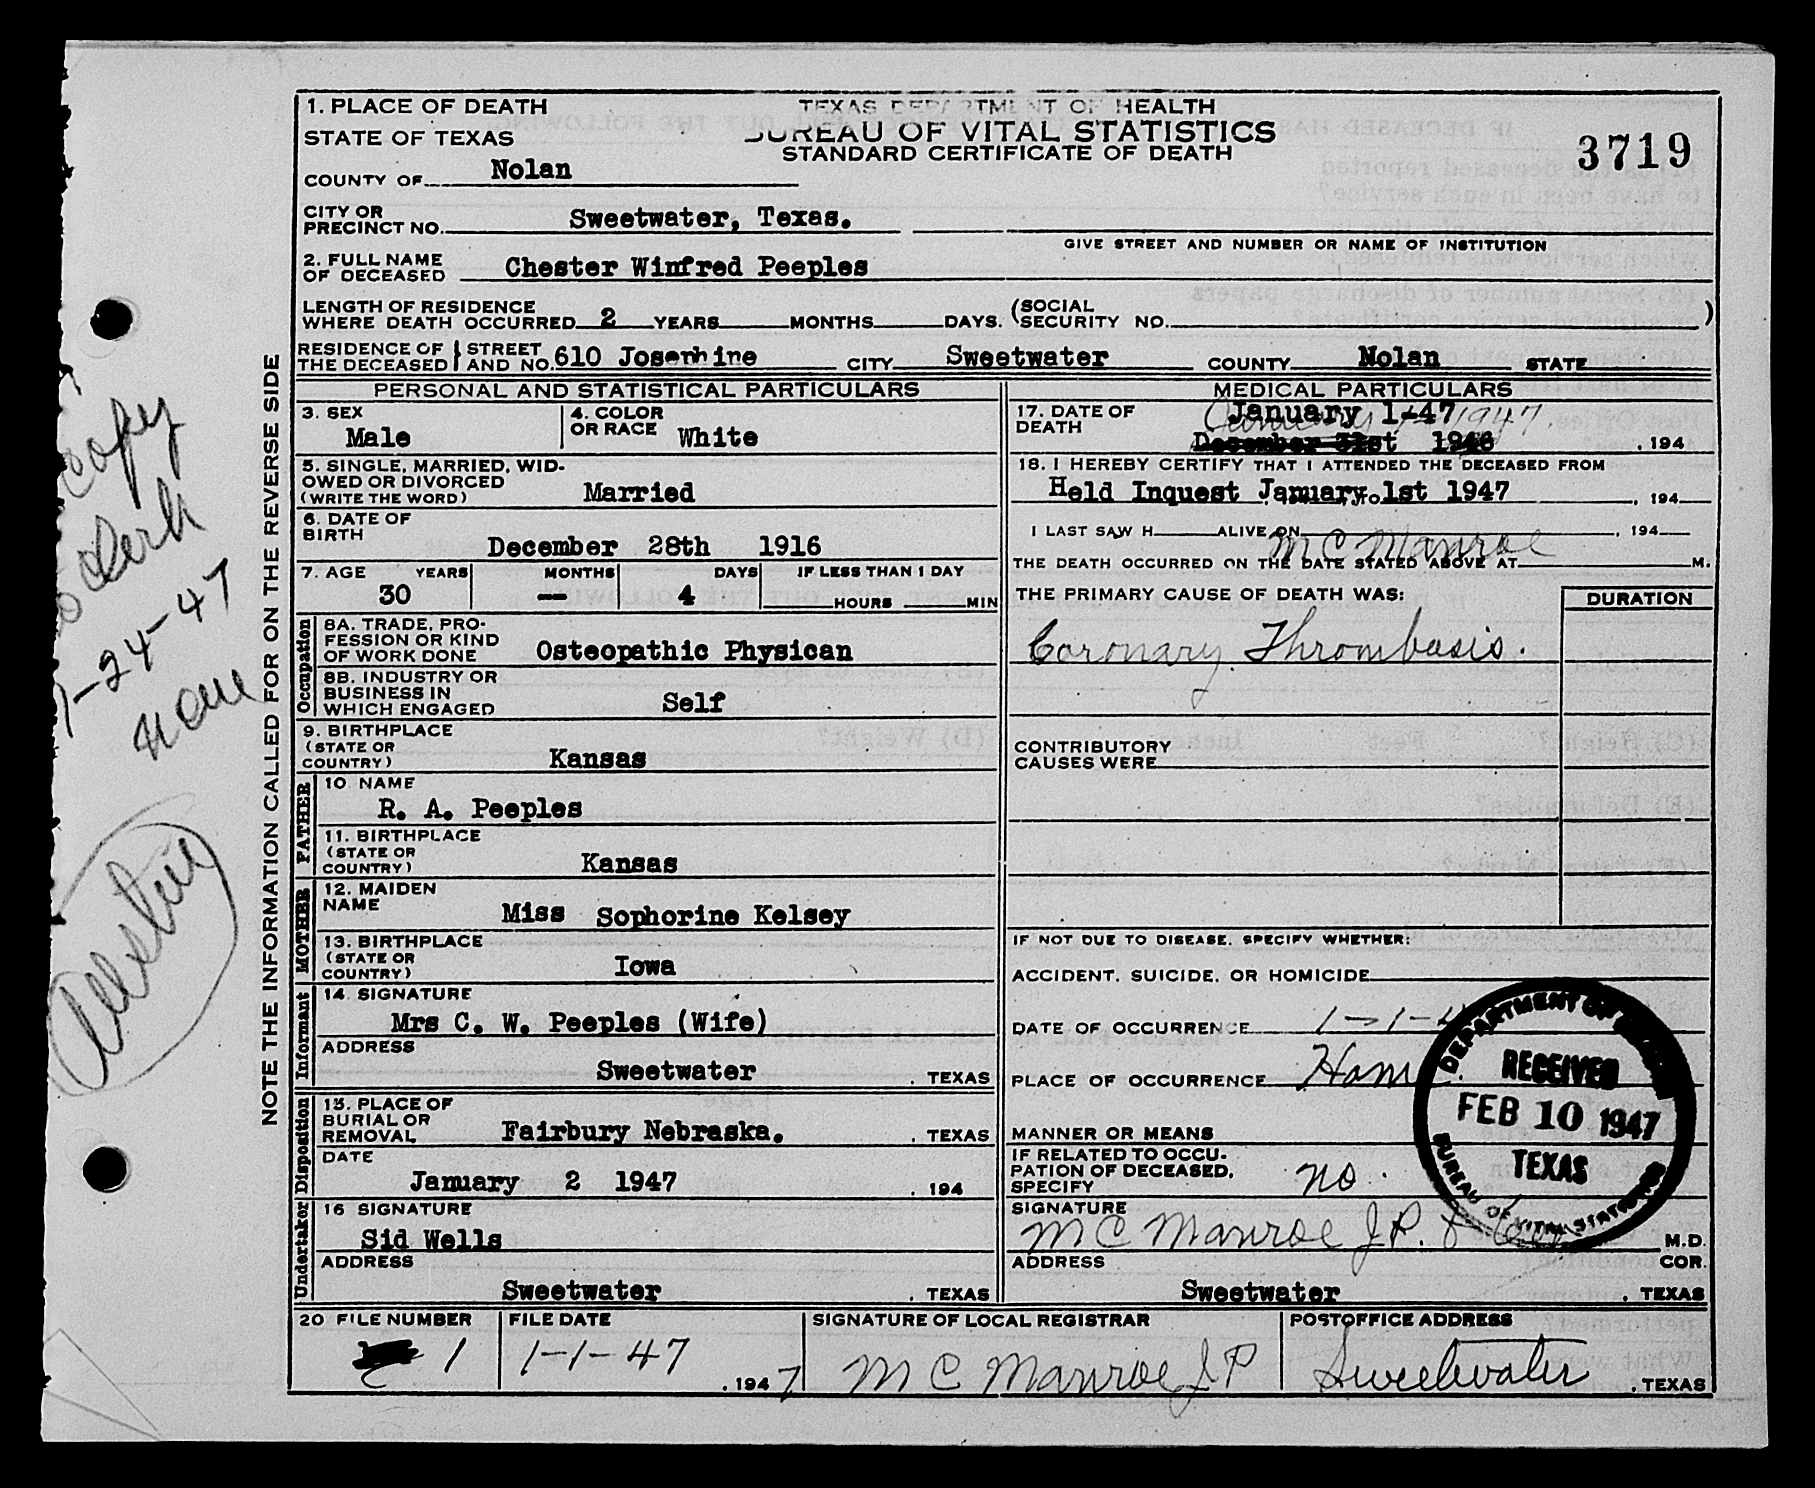 1. PLACE OF DEATH
STATE OF TEXAS
COUNTY OF Nolan
TEXAS DEPARTMENT OF HEALTH
BUREAU OF VITAL STATISTICS
STANDARD CERTIFICATE OF DEATH
3719
CITY OR PRECINCT NO. Sweetwater, Texas.
GIVE STREET AND NUMBER OR NAME OF INSTITUTION
2. FULL NAME OF DECEASED Chester Winfred Peeples
LENGTH OF RESIDENCE WHERE DEATH OCCURRED 2 YEARS MONTHS DAYS. (SOCIAL SECURITY NO. )
RESIDENCE OF THE DECEASED } STREET AND NO. 610 Josephine CITY Sweetwater COUNTY Nolan STATE
PERSONAL AND STATISTICAL PARTICULARS
3. SEX Male
4. COLOR OR RACE White
5. SINGLE, MARRIED, WIDOWED OR DIVORCED (WRITE THE WORD) Married
6. DATE OF BIRTH December 28th 1916
7. AGE YEARS MONTHS DAYS IF LESS THAN 1 DAY
30 — 4 HOURS MIN
Occupation
8A. TRADE, PROFESSION OR KIND OF WORK DONE Osteopathic Physican
8B. INDUSTRY OR BUSINESS IN WHICH ENGAGED Self
9. BIRTHPLACE (STATE OR COUNTRY) Kansas
FATHER
10 NAME R. A. Peeples
11. BIRTHPLACE (STATE OR COUNTRY) Kansas
MOTHER
12. MAIDEN NAME Miss Sophorine Kelsey
13. BIRTHPLACE (STATE OR COUNTRY) Iowa
Informant
14. SIGNATURE Mrs C. W. Peeples (Wife)
ADDRESS Sweetwater , TEXAS
Disposition
15. PLACE OF BURIAL OR REMOVAL Fairbury Nebraska. , TEXAS
DATE January 2 1947 , 194
Undertaker
16 SIGNATURE Sid Wells
ADDRESS Sweetwater , TEXAS
MEDICAL PARTICULARS
17. DATE OF DEATH January 1-47
December 31st 1946 , 194
18. I HEREBY CERTIFY THAT I ATTENDED THE DECEASED FROM
Held Inquest January 1st 1947 , 194
I LAST SAW H ALIVE ON , 194
M C Manroe
THE DEATH OCCURRED ON THE DATE STATED ABOVE AT M.
THE PRIMARY CAUSE OF DEATH WAS: DURATION
Coronary Thrombosis.
CONTRIBUTORY CAUSES WERE
IF NOT DUE TO DISEASE, SPECIFY WHETHER:
ACCIDENT, SUICIDE, OR HOMICIDE
DATE OF OCCURRENCE 1-1-4
PLACE OF OCCURRENCE
MANNER OR MEANS
IF RELATED TO OCCUPATION OF DECEASED, SPECIFY no.
SIGNATURE M C Manroe J P. M.D.
COR.
ADDRESS Sweetwater , TEXAS
DEPARTMENT OF HEALTH
RECEIVED
FEB 10 1947
TEXAS
BUREAU OF VITAL STATISTICS
20 FILE NUMBER 1
FILE DATE 1-1-47 , 1947
SIGNATURE OF LOCAL REGISTRAR M C Manroe J P
POSTOFFICE ADDRESS Sweetwater , TEXAS
NOTE THE INFORMATION CALLED FOR ON THE REVERSE SIDE
copy
1-24-47